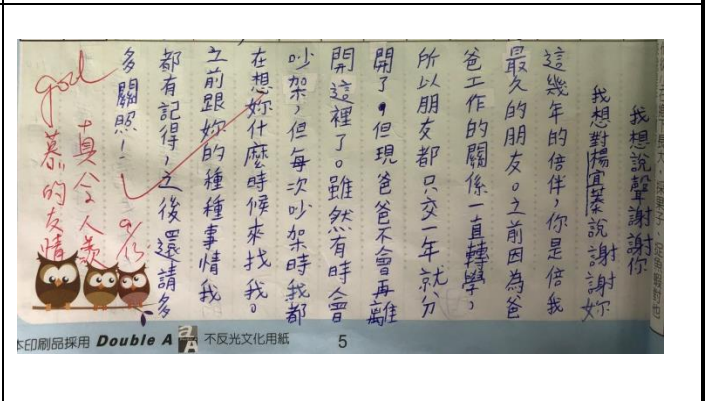 我想說聲謝謝你
我想對楊宜蓁說謝謝妳
這幾年的倍伴，你是倍我
最久的朋友。之前因為爸
爸工作的關係一直轉學，
所以朋友都只交一年就分
開了。但現爸爸不會再離
開這裡了。雖然有時會
吵架，但每次吵架時我都
在想妳什麼時候來找我。
之前跟妳的種種事情我
都有記得，之後還請多
多關照！
good 真令人羨
慕的友情
本印刷品採用 Double A 不反光文化用紙
5